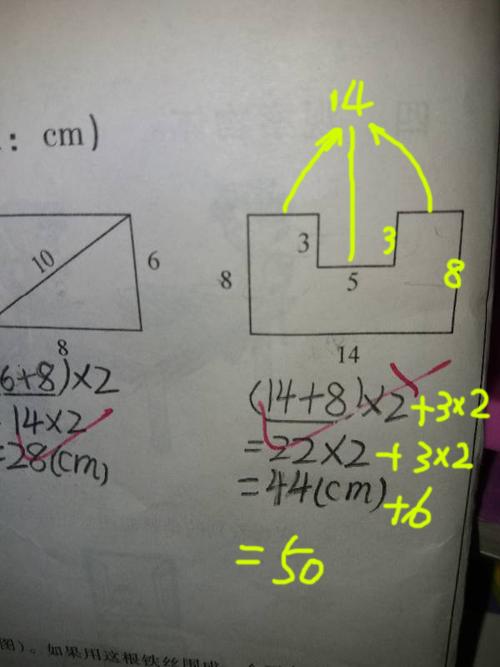 14
: cm)
10
6
8
8
3
3
5
8
14
6+8)×2
14×2
=28(cm)
(14+8)×2+3×2
=22×2+3×2
=44(cm)+6
=50
图)。如果用这根铁丝围成一个